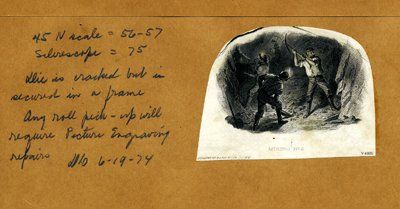 45 N scale = 56-57
Sclerescope = 75
Die is cracked but is
secured in a frame
Any roll pick-up will
require Picture Engraving
repairs 6-19-74
MINING NO 2
V 4665